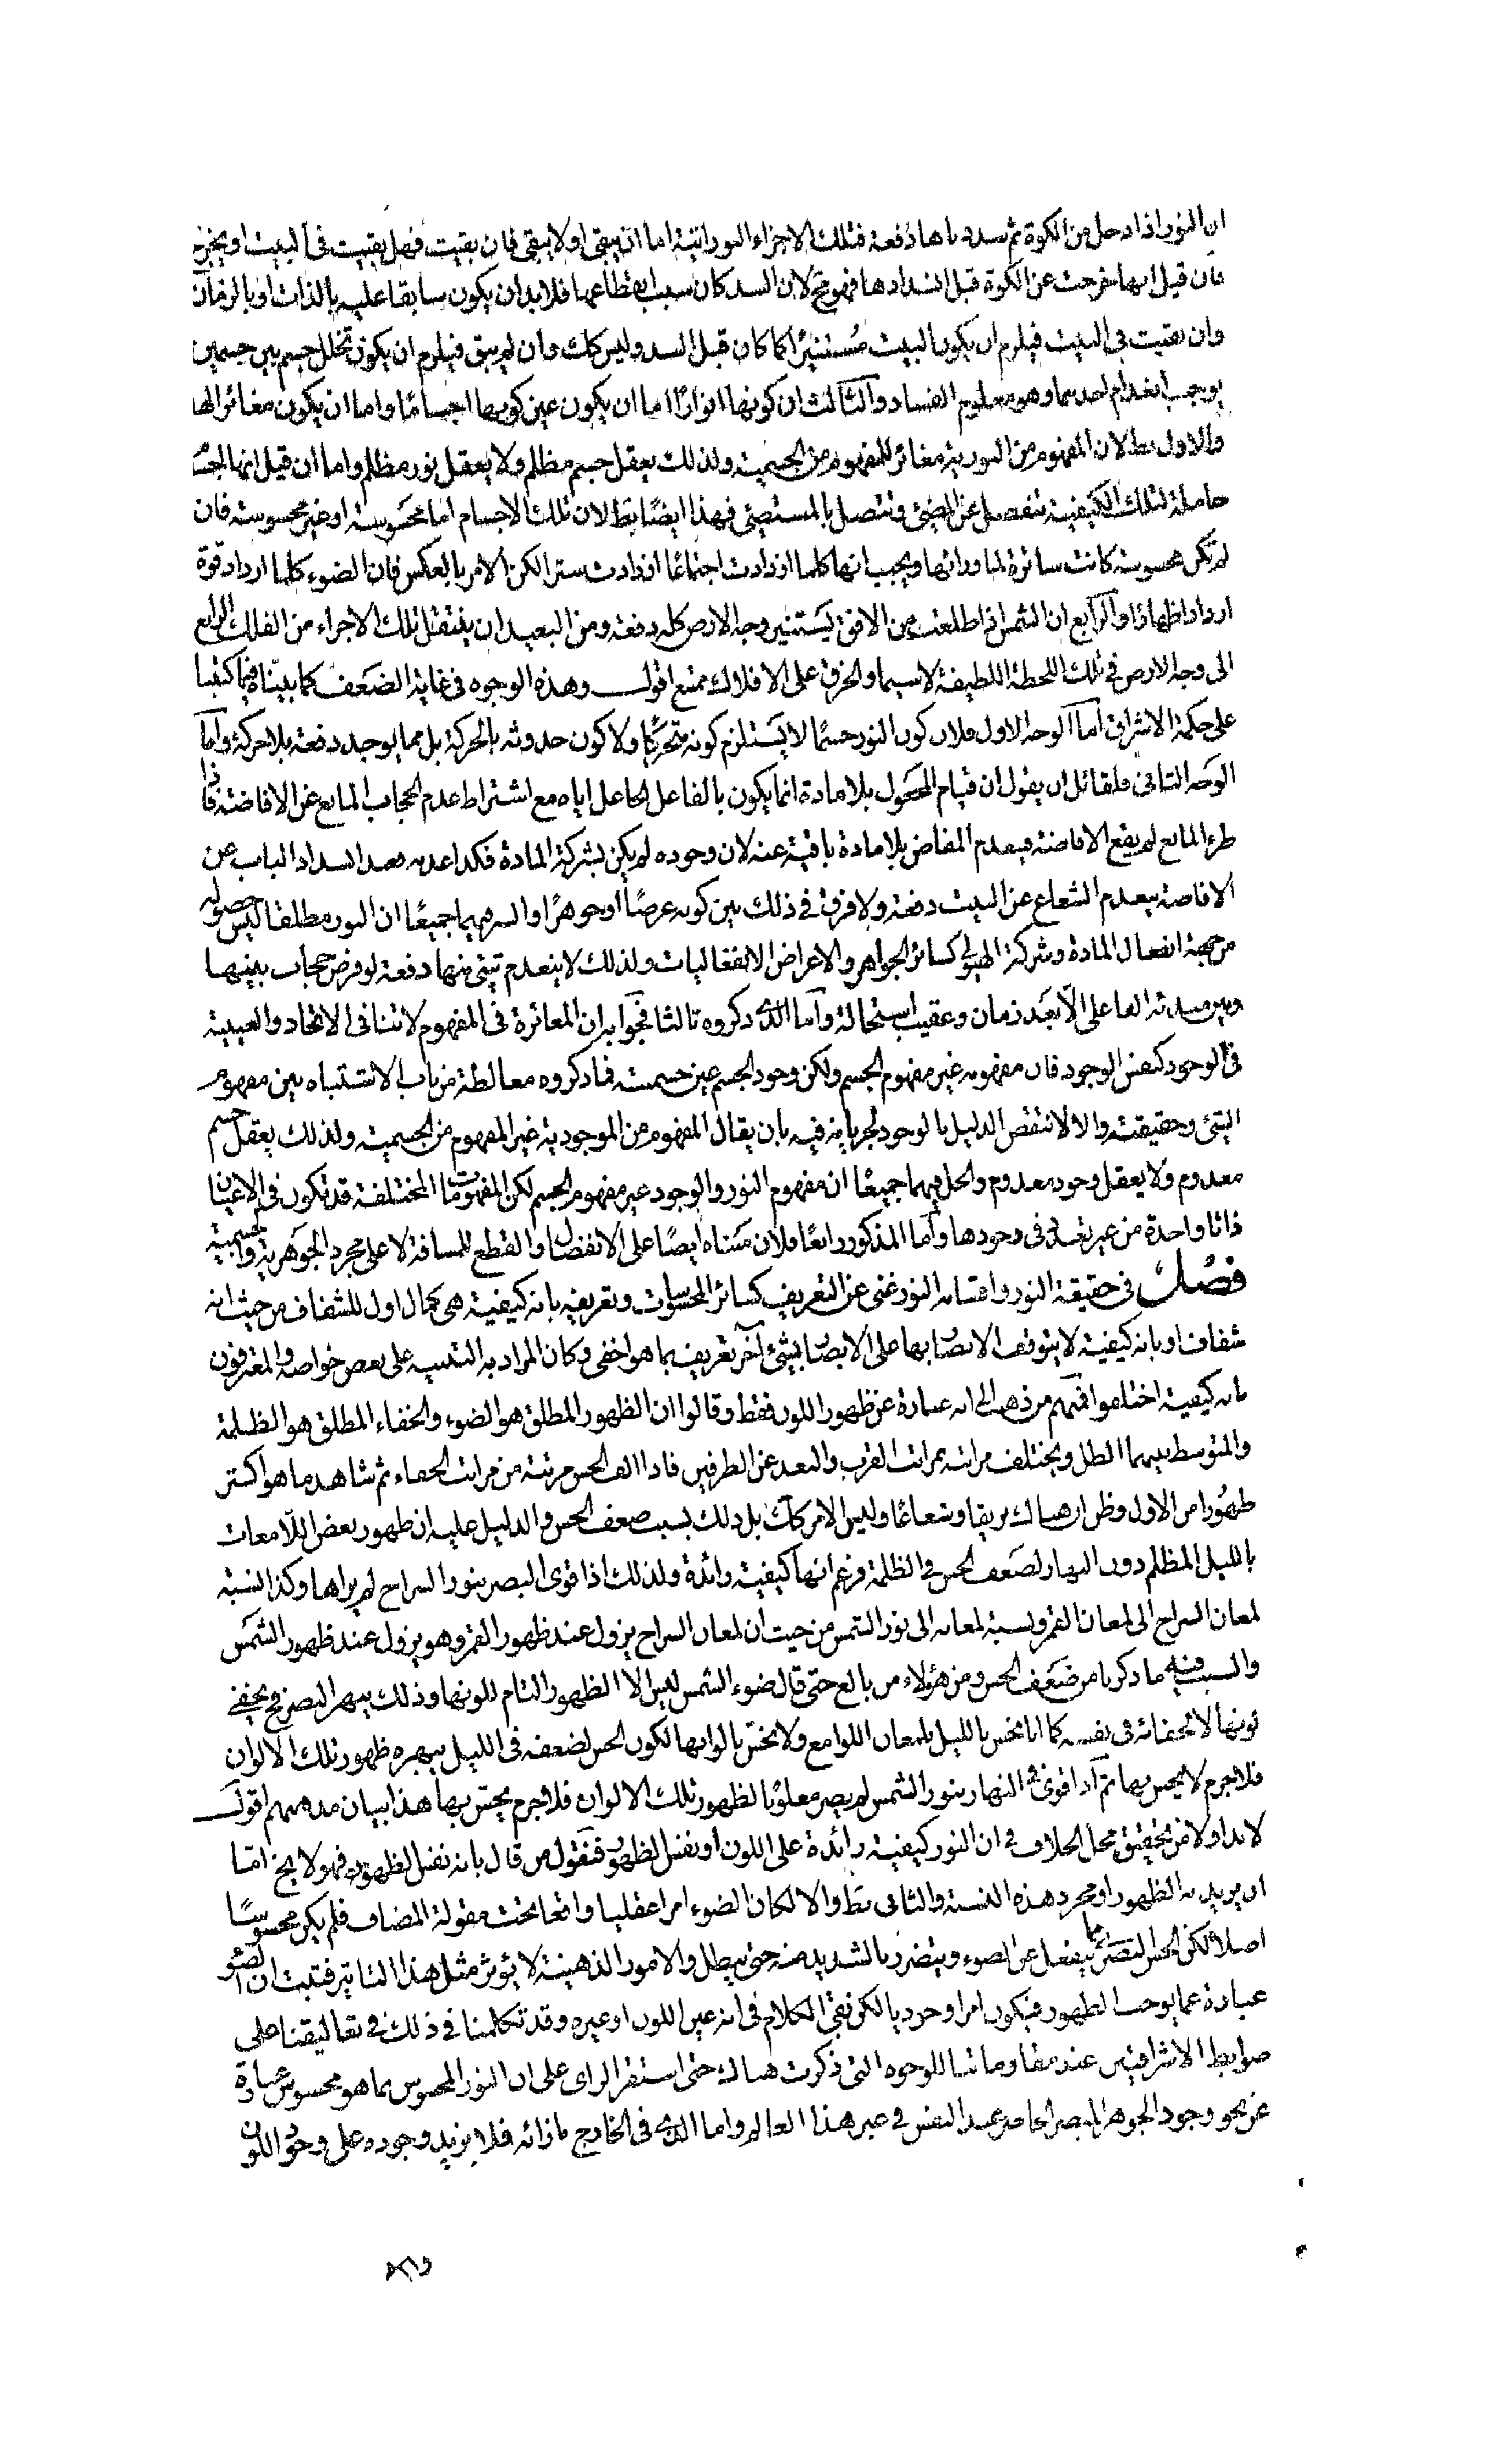 ان النور اذا دخل من الكوة ثم سددناها دفعة فتلك الاجزاء النورانية اما ان يبقى او لا يبقى فان بقيت فهل بقيت في البيت او يخرج
فان قيل انها خرجت عن الكوة قبل انسدادها فهو مح لان السد كان سبب انقطاعها فلا بد ان يكون سابقا عليه بالذات او بالزمان
وان بقيت في البيت فيلزم ان يكون البيت مستنيرا كما كان قبل السد وليس كك وان لم يبق فيلزم ان يكون تخلل جسم بين جسمين
يوجب انعدام احدهما وهو معلوم الفساد والثالث ان كونها انوارا اما ان يكون عين كونها اجساما واما ان يكون مغائرا لها
والاول بط لان المفهوم من النورية مغائر للمفهوم من الجسمية ولذلك يعقل جسم مظلم ولا يعقل نور مظلم واما ان قيل انها اجسا
حاملة لتلك الكيفية تنفصل عن المضئ وتتصل بالمستضئ فهذا ايضا بط لان تلك الاجسام اما محسوسة او غير محسوسة فان
لم تكن محسوسة كانت ساترة لما ورائها ويجب انها كلما ازدادت اجتماعا ازدادت سترا لكن الامر بالعكس فان الضوء كلما ازداد قوة
ازداد اظهارا والرابع ان الشمس اذا طلعت من الافق يستنير وجه الارض كله دفعة ومن البعيد ان ينتقل تلك الاجزاء من الفلك الرابع
الى وجه الارض في تلك اللحظة اللطيفة لا سيما والخرق على الافلاك ممتنع اقول وهذه الوجوه في غاية الضعف كما بيناه فيما كتبنا
على حكمة الاشراق اما الوجه الاول فلان كون النور جسما لا يستلزم كونه متحركا ولا كون حدوثه بالحركة بل مما يوجد دفعة بلا حركة واما
الوجه الثاني فلقائل ان يقول ان قيام المجعول بلا مادة انما يكون بالفاعل الجاعل اياه مع اشتراط عدم الحجاب المانع عن الافاضة فاذا
طرء المانع لم يقع الافاضة فيعدم المفاض بلا مادة باقية عنه لان وجوده لم يكن بشركة المادة فكذا عدمه فعند انسداد الباب عن
الافاضة ينعدم الشعاع عن البيت دفعة ولا فرق في ذلك بين كونه عرضا او جوهرا والسر فيهما جميعا ان النور مطلقا ليس حصوله
من جهة انفعال المادة وشركة الهيولى كسائر الجواهر والاعراض الانفعاليات ولذلك لا ينعدم شئ منها دفعة لو فرض حجاب بينها
وبين مبدئه الفاعلي الا بعد زمان وعقيب استحالة واما الذي ذكروه ثالثا فجوابه ان المغائرة في المفهوم لا تنافي الاتحاد والعينية
في الوجود كنفس الوجود فان مفهومه غير مفهوم الجسم ولكن وجود الجسم عين جسميته فما ذكروه مغالطة من باب الاشتباه بين مفهوم
الشئ وحقيقته والا لانتقض الدليل بالوجود لجريانه فيه بان يقال المفهوم من الموجودية غير المفهوم من الجسمية ولذلك يعقل جسم
معدوم ولا يعقل وجود معدوم والحل فيهما جميعا ان مفهوم النور والوجود غير مفهوم الجسم لكن المفهومات المختلفة قد تكون في الاعيان
ذاتا واحدة من غير تعدد في وجودها واما المذكور رابعا فلان مبناه ايضا على الانفصال والقطع للمسافة لا على مجرد الجوهرية والجسمية
فصل في حقيقة النور واقسامه النور غنى عن التعريف كسائر المحسوسات وتعريفه بانه كيفية هي كمال اول للشفاف من حيث انه
شفاف او بانه كيفية لا يتوقف الابصار بها على الابصار بشئ آخر تعريف بما هو اخفى وكان المراد به التنبيه على بعض خواصه والمعترفون
بانه كيفية اختلفوا فمنهم من ذهب الى انه عبارة عن ظهور اللون فقط وقالوا ان الظهور المطلق هو الضوء والخفاء المطلق هو الظلمة
والمتوسط بينهما الظل ويختلف مراتبه بمراتب القرب والبعد عن الطرفين فاذا الف الحس مرتبة من مراتب الخفاء ثم شاهد ما هو اكثر
ظهورا من الاول وظن ان هناك بريقا وشعاعا وليس الامر كك بل ذلك بسبب ضعف الحس والدليل عليه ان ظهور بعض اللامعات
بالليل المظلم دون النهار لضعف الحس في الظلمة فزعم انها كيفية زائدة ولذلك اذا قوى البصر بنور السراج لم يراها وكذا نسبة
لمعان السراج الى لمعان القمر ونسبة لمعانه الى نور الشمس من حيث ان لمعان السراج يزول عند ظهور القمر وهو يزول عند ظهور الشمس
والسبب فيه ما ذكرنا من ضعف الحس ومن هؤلاء من بالغ حتى قال ضوء الشمس ليس الا الظهور التام للونها وذلك يبهر البصر فح يخفى
لونها لا لخفائه في نفسه كما انا نحس بالليل بلمعان اللوامع ولا نحس بالوانها لكون الحس لضعفه في الليل يبهره ظهور تلك الالوان
فلا جرم لا يحس بها ثم اذا قوى في النهار بنور الشمس لم يصر مغلوبا لظهور تلك الالوان فلا جرم يحس بها هذا بيان مذهبهم اقول
لا بد اولا من تحقيق محل الخلاف في ان النور كيفية زائدة على اللون او نفس الظهور فنقول من قال بانه نفس الظهور فهو لا يخ اما
ان يريد به الظهور او مجرد هذه النسبة والثاني بط والا لكان الضوء امرا عقليا واقعا تحت مقولة المضاف فلم يكن محسوسا
اصلا لكن الحس البصري مما ينفعل عن الضوء ويتضرر بالشديد منه حتى يبطل والامور الذهنية لا يؤثر مثل هذا التاثير فثبت ان الضوء
عبارة عما يوجب الظهور فيكون امرا وجوديا لكن نفى الكلام في انه عين اللون او غيره وقد تكلمنا في ذلك في تعاليقنا على
ضوابط الاشراقيين عند مقاوماتنا للوجوه التي ذكرت هناك حتى استقر الراى على ان النور المحسوس بما هو محسوس عبارة
عن نحو وجود الجوهر المبصر الحاضر عند النفس في غير هذا العالم واما الذي في الخارج بازائه فلا يزيد وجوده على وجود اللون